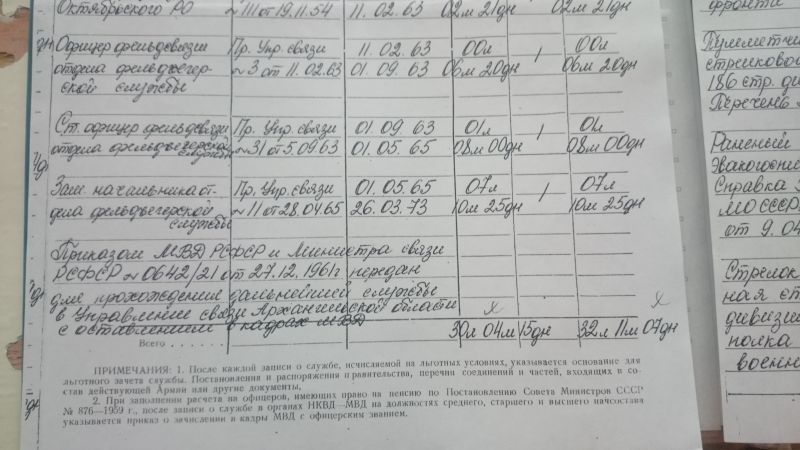 Октябрьского РО ~111 от 19.11.54 11.02.63 02м 21дн 02м 21дн
Офицер фельдсвязи Пр. Упр. связи 11.02.63 00л 1 00л
отдела фельдъегер- ~3 от 11.02.63 01.09.63 06м 20дн 06м 20дн
ской службы
Ст. офицер фельдсвязи Пр. Упр. связи 01.09.63 01л 1 01л
отдела фельдъегерской ~31 от 5.09.63 01.05.65 08м 00дн 08м 00дн
службы
Зам. начальника от- Пр. Упр. связи 01.05.65 07л 1 07л
дела фельдъегерской ~11 от 28.04.65 26.03.73 10м 25дн 10м 25дн
службы
Приказом МВД РСФСР и Министра связи
РСФСР ~0642/21 от 27.12.1961г передан
для прохождения дальнейшей службы
в Управление связи Архангельской области х х
с оставлением в кадрах МВД
Всего . . . . . . 30л 04м 15дн 32л 11м 07дн
ПРИМЕЧАНИЯ: 1. После каждой записи о службе, исчисляемой на льготных условиях, указывается основание для
льготного зачета службы. Постановления и распоряжения правительства, перечни соединений и частей, входящих в со-
став действующей Армии или другие документы.
2. При заполнении расчета на офицеров, имеющих право на пенсию по Постановлению Совета Министров СССР
№ 876—1959 г., после записи о службе в органах НКВД—МВД на должностях среднего, старшего и высшего начсостава
указывается приказ о зачислении в кадры МВД с офицерским званием.
фронта
Пулеметчик
стрелково
186 стр. ди
Перечень
Раненый
Эвакогоспи
Справка
МО СССР
от 9.04
Стрелок
ная ст
дивизии
полка
военн